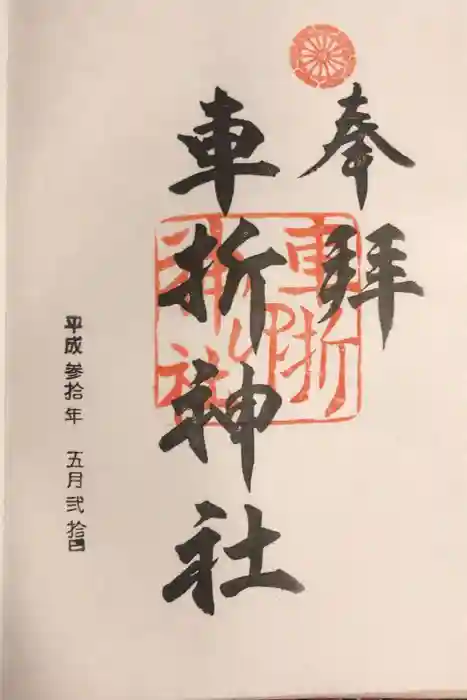 奉拝
車折神社
車折
神社
平成参拾年 五月弐拾日